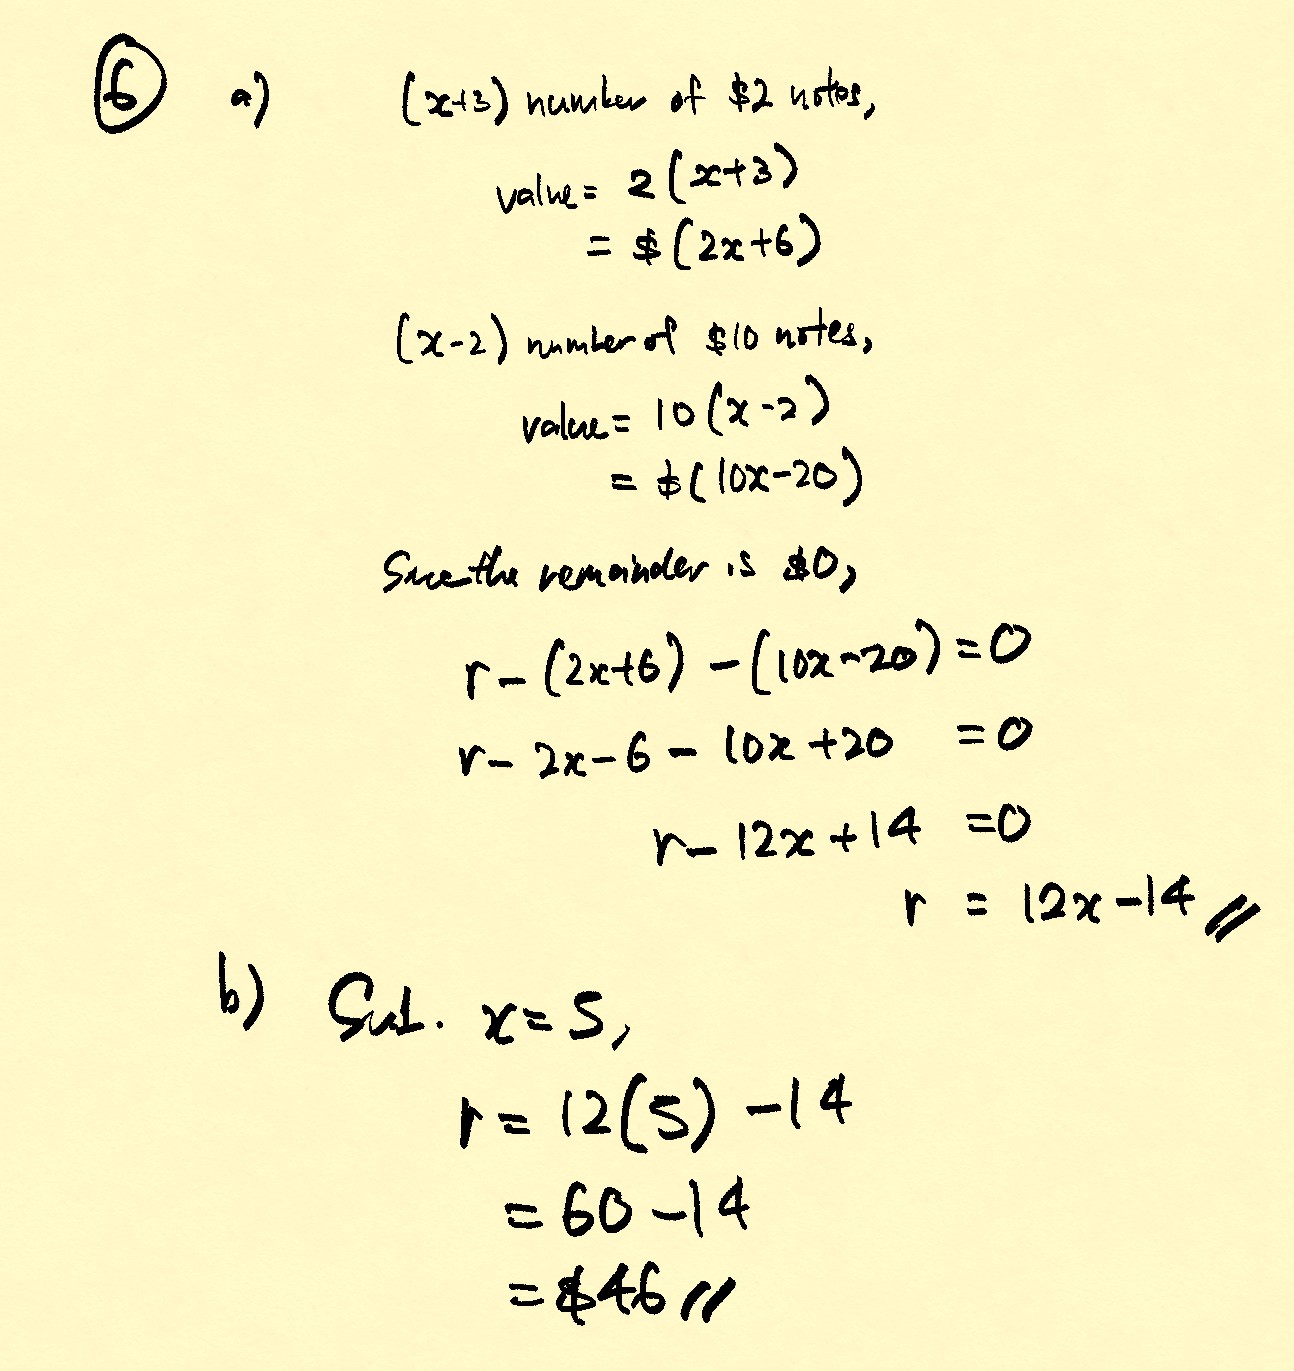 6 a) (x+3) number of $2 notes,
value = 2(x+3)
= $(2x+6)
(x-2) number of $10 notes,
value = 10(x-2)
= $(10x-20)
Since the remainder is $0,
r - (2x+6) - (10x-20) = 0
r - 2x - 6 - 10x + 20 = 0
r - 12x + 14 = 0
r = 12x - 14 //
b) Sub. x = 5,
r = 12(5) - 14
= 60 - 14
= $46 //